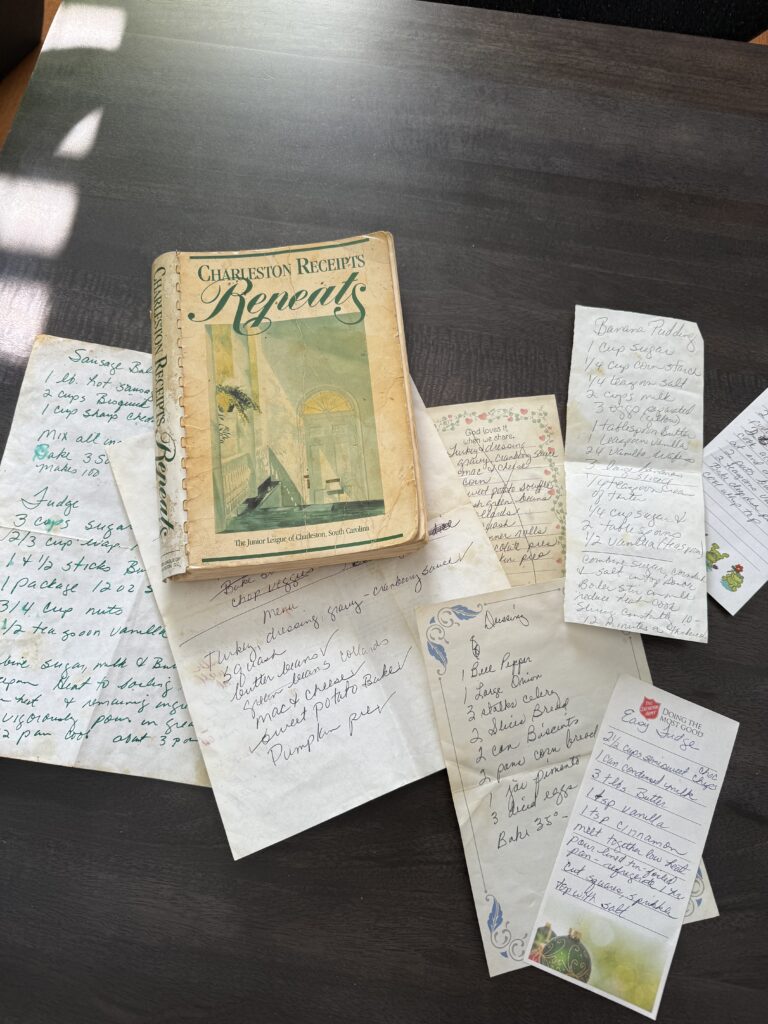 CHARLESTON RECEIPTS
Repeats
The Junior League of Charleston, South Carolina
CHARLESTON RECEIPTS
REPEATS
Sausage Bal
1 lb. Hot sausa
2 cups Bisquick
1 cup sharp chee
Mix all in
Bake 350
Makes 100
Fudge
3 cups sugar
2/3 cup evap.
1 & 1/2 sticks Bu
1 package 12 oz s
3/4 cup nuts
1/2 teaspoon vanilla
bine sugar, milk & Bu
Heat to boiling
heat & remaining ingre
vigorously pour in grea
pan cool about 3
chop veggies
Menu
Turkey, dressing, gravy - cranberry sauce
Squash
butter beans
green beans collards
mac & cheese
sweet potato Bake
Pumpkin pies
God loves it
when we share.
Turkey & dressing
gravy, cranberry sauce
mac & cheese
corn
sweet potato souffle
green beans
collards
squash
rolls
pies
pies
Banana Pudding
1 cup sugar
1/4 cup corn starch
1/4 teaspoon salt
2 cups milk
3 eggs separated
1 tablespoon Butter
1 teaspoon vanilla
24 vanilla wafers
3 large bananas
1/4 teaspoon cream
of tarter
1/4 cup sugar &
2 tablespoons
1/2 vanilla teaspoon
Combine sugar, cornstarch
& salt in top double
Boiler stir in milk
reduce heat cook
Stirring constantly 10-
12 minutes
Dressing
1 Bell Pepper
1 Large Onion
3 stalks celery
2 Slices Bread
2 can Biscuits
2 pans corn bread
1 jar pimento
3 diced eggs
Bake 35° -
THE SALVATION ARMY
DOING THE
MOST GOOD
Easy Fudge
2 1/2 cups semisweet choc chips
1 can condensed milk
3 tbs Butter
1 tsp vanilla
1 tsp cinnamon
melt together low heat
pour lined tin foiled
pan - refrigerate 1 hr
cut squares, sprinkle
top with salt